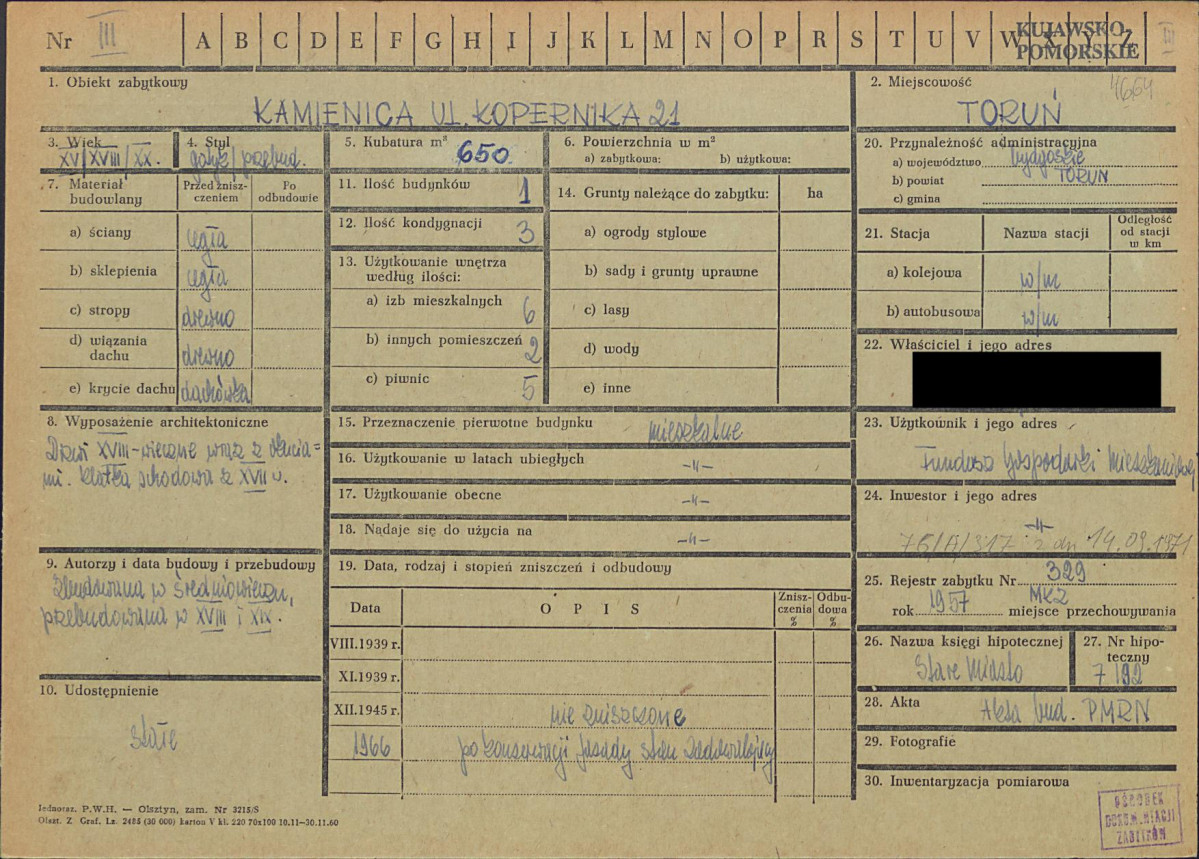 Nr III A B C D E F G H I J K L M N O P R S T U V W X Y Z
KUJAWSKO-
POMORSKIE
III
1. Obiekt zabytkowy
KAMIENICA UL. KOPERNIKA 21
2. Miejscowość
4664
TORUŃ
3. Wiek
XV/XVIII/XX.
4. Styl
gotyk/przebud.
5. Kubatura m³
650
6. Powierzchnia w m²
a) zabytkowa: b) użytkowa:
20. Przynależność administracyjna
a) województwo bydgoskie
b) powiat TORUŃ
c) gmina
7. Materiał budowlany
Przed zniszczeniem
Po odbudowie
a) ściany cegła
b) sklepienia cegła
c) stropy drewno
d) wiązania dachu drewno
e) krycie dachu dachówka
11. Ilość budynków 1
12. Ilość kondygnacji 3
13. Użytkowanie wnętrza
według ilości:
a) izb mieszkalnych 6
b) innych pomieszczeń 2
c) piwnic 5
14. Grunty należące do zabytku: ha
a) ogrody stylowe
b) sady i grunty uprawne
c) lasy
d) wody
e) inne
21. Stacja
Nazwa stacji
Odległość od stacji w km
a) kolejowa w/m
b) autobusowa w/m
22. Właściciel i jego adres
8. Wyposażenie architektoniczne
Drzwi XVIII-wieczne wraz z okucia-
mi. Klatka schodowa z XVII w.
15. Przeznaczenie pierwotne budynku mieszkalne
16. Użytkowanie w latach ubiegłych -〃-
17. Użytkowanie obecne -〃-
18. Nadaje się do użycia na -〃-
23. Użytkownik i jego adres
Fundusz Gospodarki Mieszkaniowej
24. Inwestor i jego adres
-〃-
76/A/317 z dn 14.09.1971
9. Autorzy i data budowy i przebudowy
Zbudowana w średniowieczu,
przebudowana w XVIII i XIX.
19. Data, rodzaj i stopień zniszczeń i odbudowy
Data
OPIS
Zniszczenia %
Odbudowa %
VIII.1939 r.
XI.1939 r.
XII.1945 r. nie zniszczone
1966 po konserwacji fasady stan zadowalający
25. Rejestr zabytku Nr 329
rok 1957 MKZ miejsce przechowywania
26. Nazwa księgi hipotecznej
Stare Miasto
27. Nr hipoteczny
7/192
10. Udostępnienie
stałe
28. Akta Akta bud. PMRN
29. Fotografie
30. Inwentaryzacja pomiarowa
Jednoraz. P.W.H. — Olsztyn, zam. Nr 3215/S
Olszt. Z. Graf. Lz. 2485 (30 000) karton V kl. 220 70x100 10.11—30.11.60
OŚRODEK
DOKUMENTACJI
ZABYTKÓW